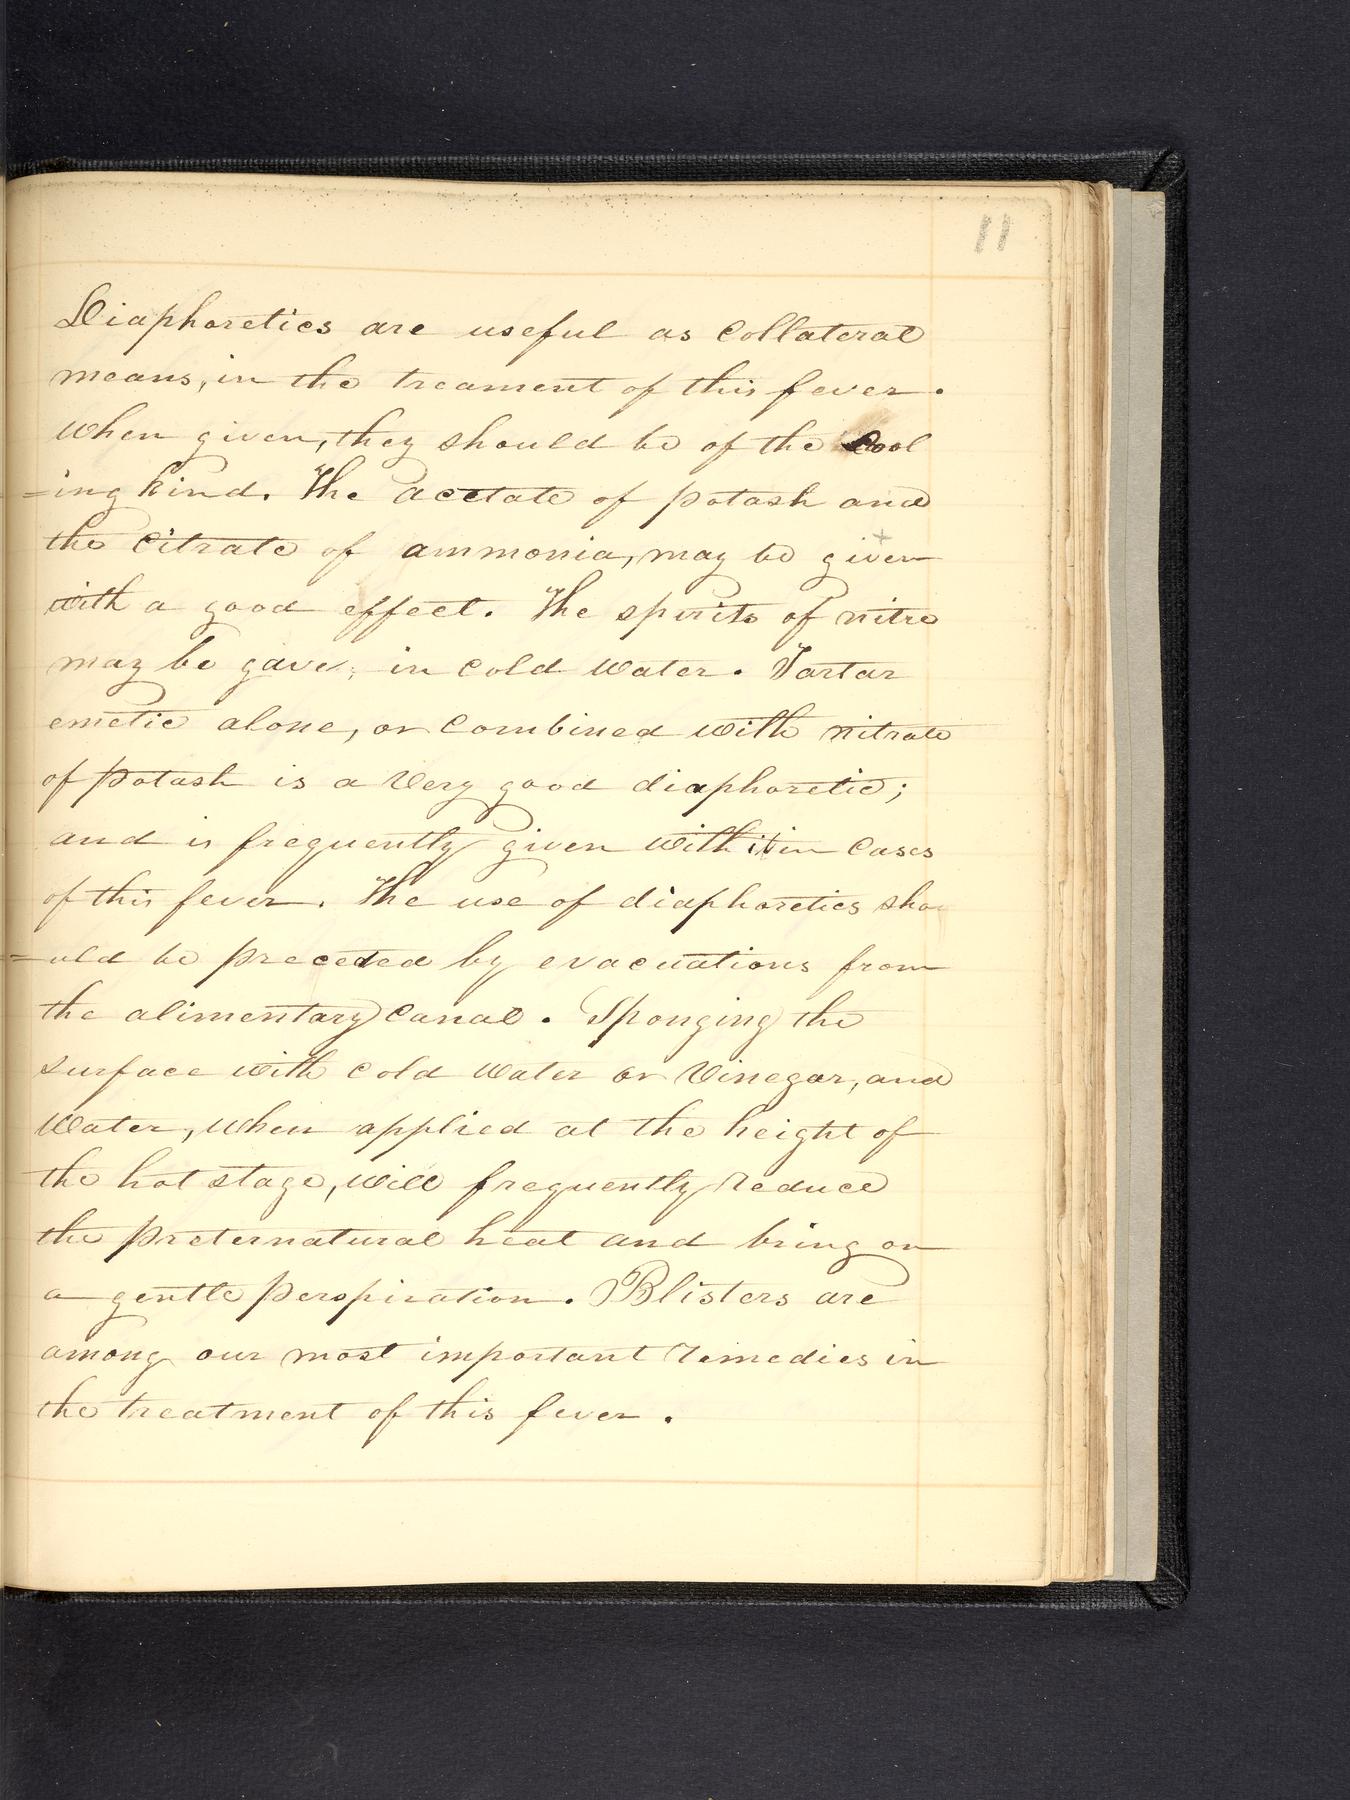 11
Diaphoretics are useful as collateral
means, in the treament of this fever.
When given, they should be of the cool
=ing kind. The acetate of potash and
the citrate of ammonia, may be given
with a good effect. The spirits of nitre
may be gave, in cold water. Tartar
emetic alone, or combined with nitrate
of potash is a very good diaphoretic;
and is frequently given with it in cases
of this fever. The use of diaphoretics sho
=uld be preceded by evacuations from
the alimentary canal. Sponging the
surface with cold water or vinegar, and
water, when applied at the height of
the hot stage, will frequently reduce
the preternatural heat and bring on
a gentle perspiration. Blisters are
among our most important remedies in
the treatment of this fever.